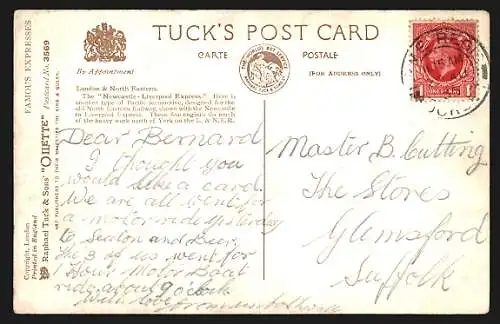 TUCK'S POST CARD
CARTE POSTALE
(FOR ADDRESS ONLY)
By Appointment
FAMOUS EXPRESSES
Raphael Tuck & Sons' "OILETTE" Postcard No. 3569
ART PUBLISHERS TO THEIR MAJESTIES THE KING & QUEEN.
Copyright, London
Printed in England
London & North Eastern.
The "Newcastle-Liverpool Express." Here is
another type of Pacific locomotive, designed for the
old North Eastern Railway, shown with the Newcastle
to Liverpool Express. These fine engines do much
of the heavy work north of York on the L. & N.E.R.
1 ONE PENNY 1
Dear Bernard
I thought you
would like a card.
We are all went for
a motor ride yesterday
to Seaton and Beer.
The 3 of us went for
1 Hour Motor Boat
ride about 9 o'clock
with love from
Master B. Cutting
The Stores
Glemsford
Suffolk